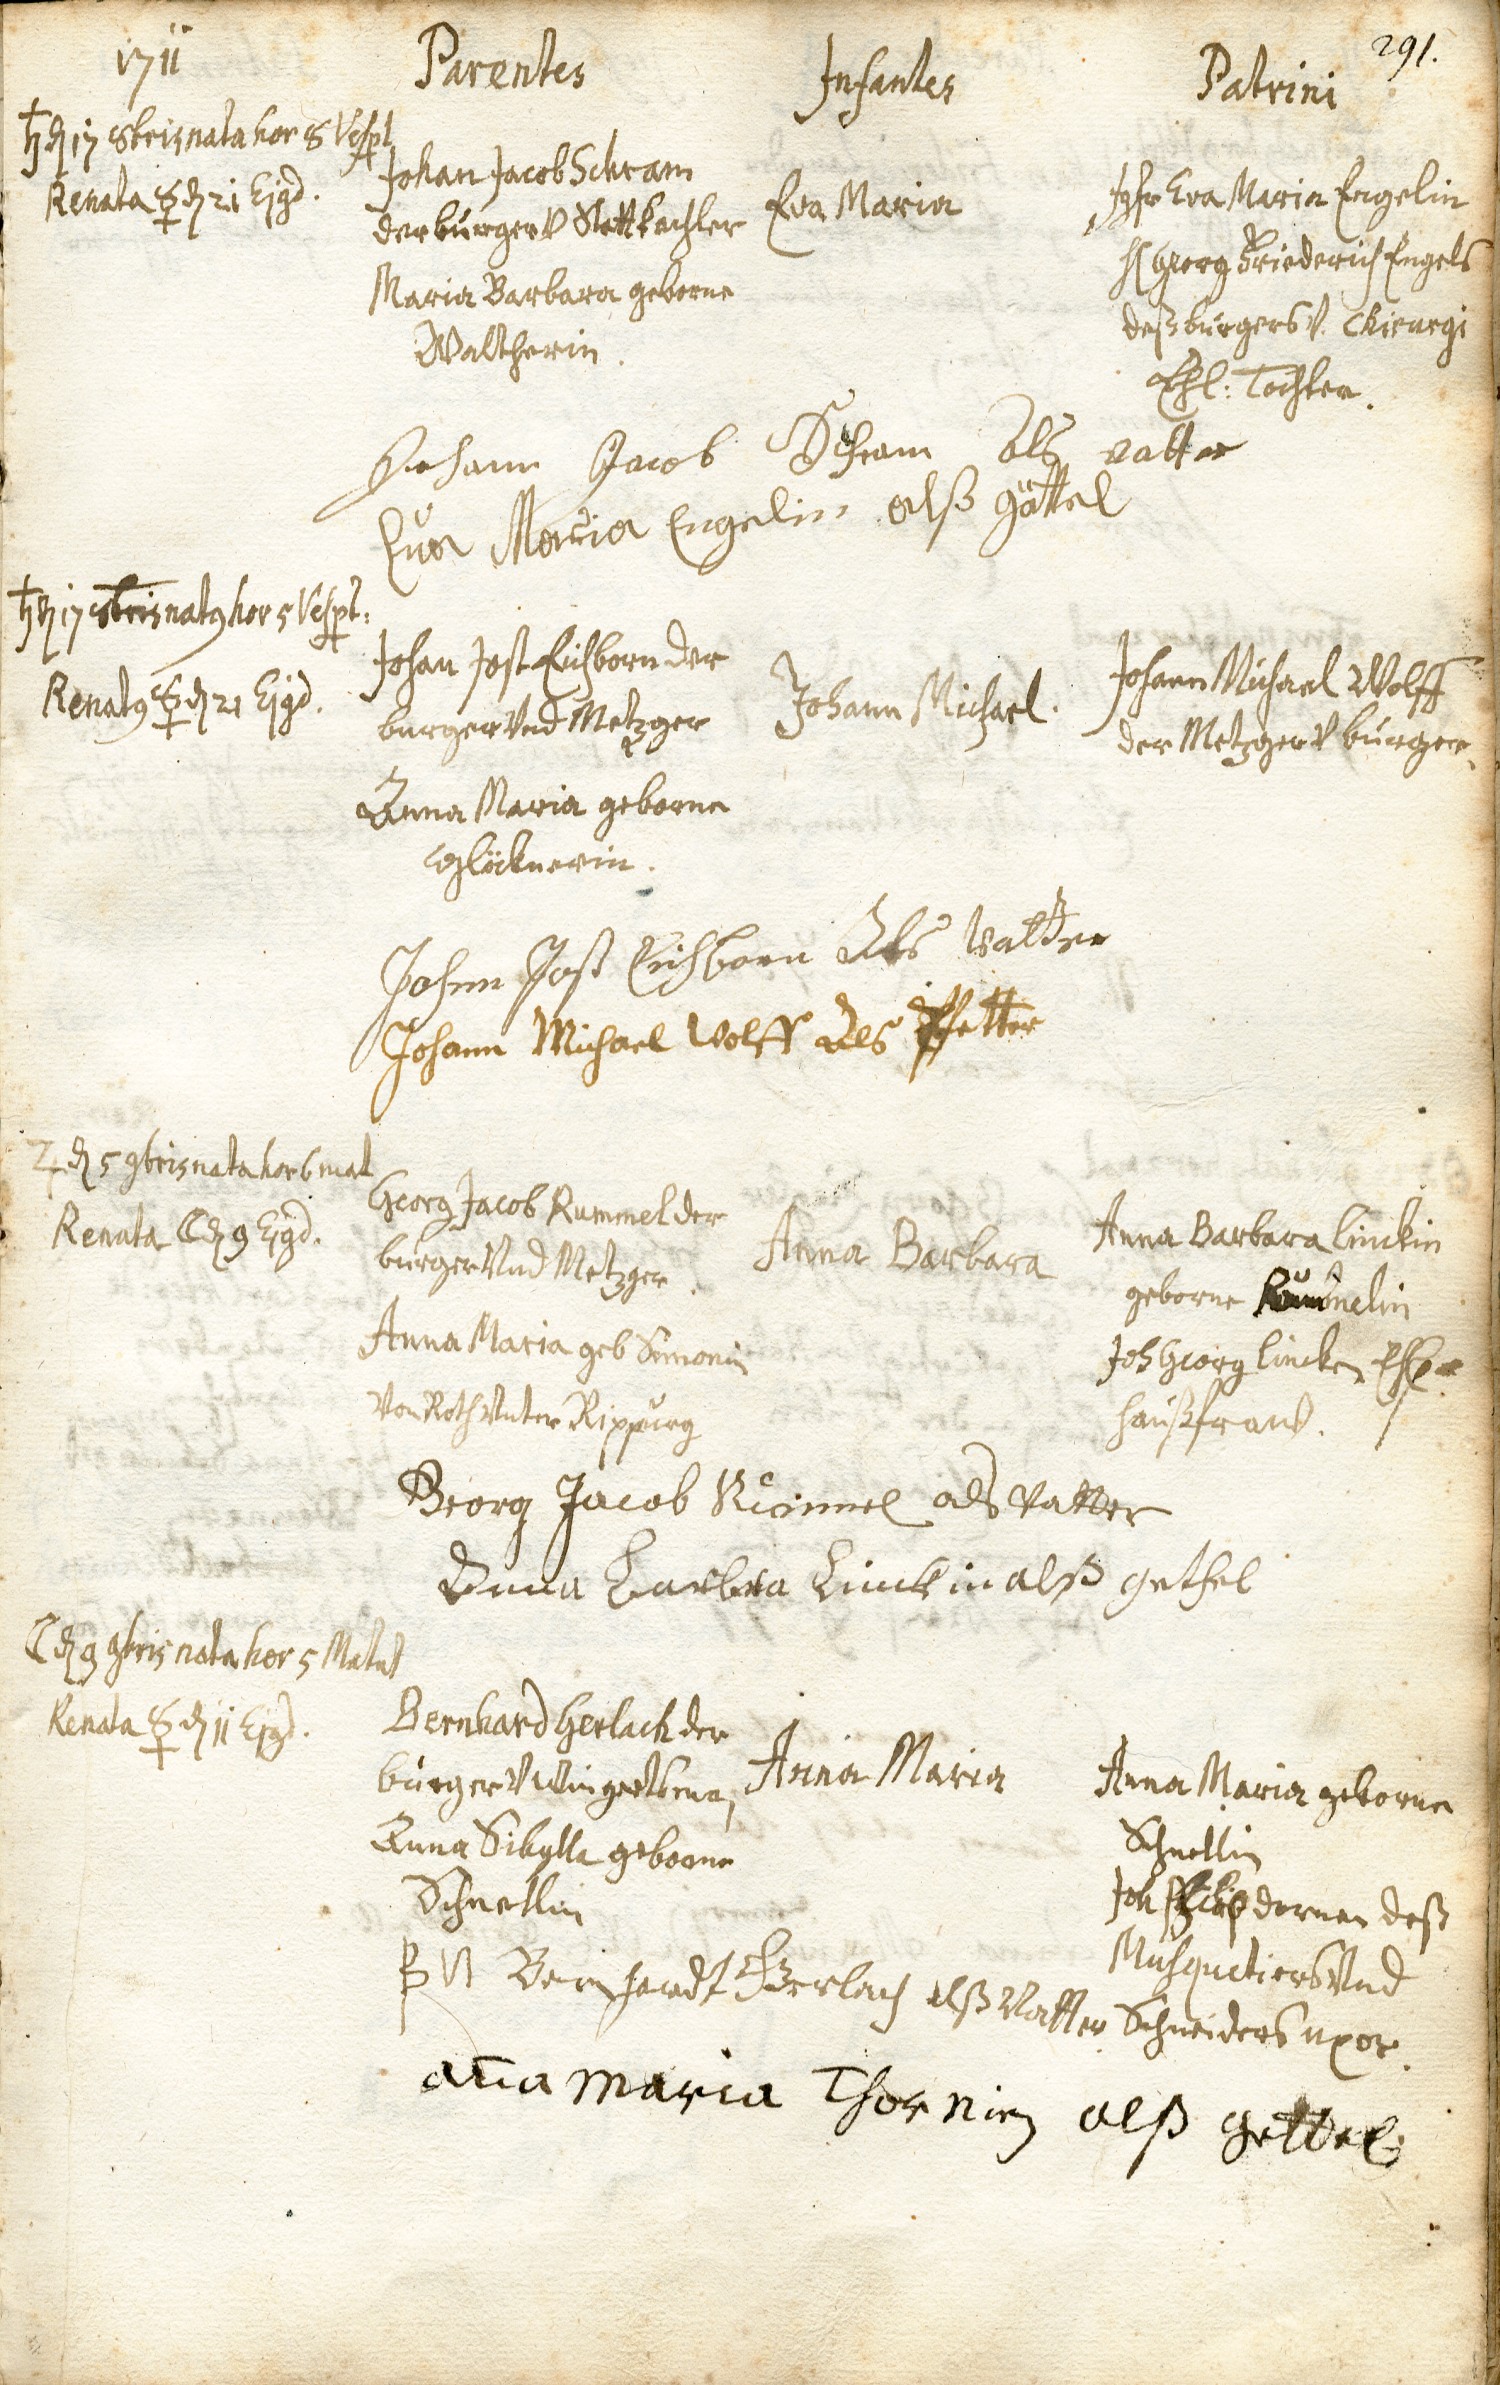 291.
1711
Parentes
Infantes
Patrini
♄ d 17 8bris nata hor 8 Vespt
Renata ☿ d 21 Ejgd.
Johan Jacob Schram
der burger V
Maria Barbara geborne
Waltherin.
Eva Maria
Jgfr Eva Maria Engelin
H Georg Friederich Engels
deß burgers V. Chirurgi
Ehl: Tochter.
Johann Jacob Schram als vatter
Eva Maria Engelin alß göttel
♄ d 17 8bris natg hor 5 Vespt:
Renatg ☿ d 21 Ejgd.
Johan Jost Eichborn der
burger Vnd Metzger
Anna Maria geborne
Glöcknerin.
Johann Michael.
Johann Michael Wolff
der Metzger V burger.
Johan Jost Eichborn Als Vatter
Johann Michael Wolff Als Pfetter
♃ d 5 9bris nata hor 6 mat
Renata ☾ d 9 Ejgd.
Georg Jacob Rummel der
burger Vnd Metzger.
Anna Maria geb Simonin
Von Roth Vnter Rippurg
Anna Barbara
Anna Barbara Linckin
geborne
Joh Georg Lincken Ehl
haußfraw.
Georg Jacob Rümmel als Vatter
Anna Barbra Linckin alß gethel
☾ d 9 9bris nata hor 5 Matut
Renata ☿ d 11 Ejgd.
Bernhard Gerlach der
burger V Wingertsman
Anna Sibylla geborne
Schnellin
Anna Maria
Anna Maria geborne
Schnellin
Joh Philip dornen deß
Musquetiers Vnd
Schneiders uxor.
Bernhardt Gerlach alß Vatter
ana maria Thornin alß gettel